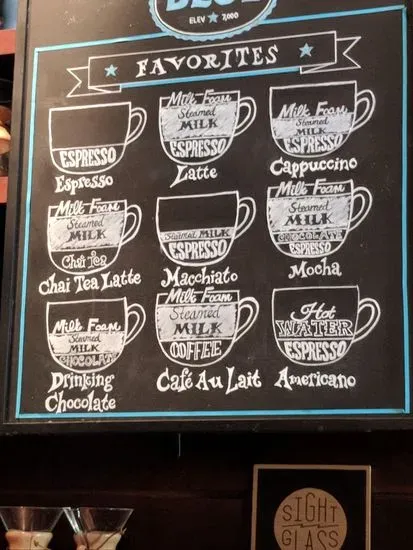 ELEV ★ 7,000
FAVORITES
ESPRESSO
Espresso
Milk Foam
Steamed
MILK
ESPRESSO
Latte
Milk Foam
Steamed
MILK
ESPRESSO
Cappuccino
Milk Foam
Steamed
MILK
Chai Tea
Chai Tea Latte
Steamed MILK
ESPRESSO
Macchiato
Milk Foam
Steamed
MILK
CHOCOLATE
ESPRESSO
Mocha
Milk Foam
Steamed
MILK
CHOCOLATE
Drinking
Chocolate
Milk Foam
Steamed
MILK
COFFEE
Café Au Lait
Hot
WATER
ESPRESSO
Americano
SIGHT
GLASS